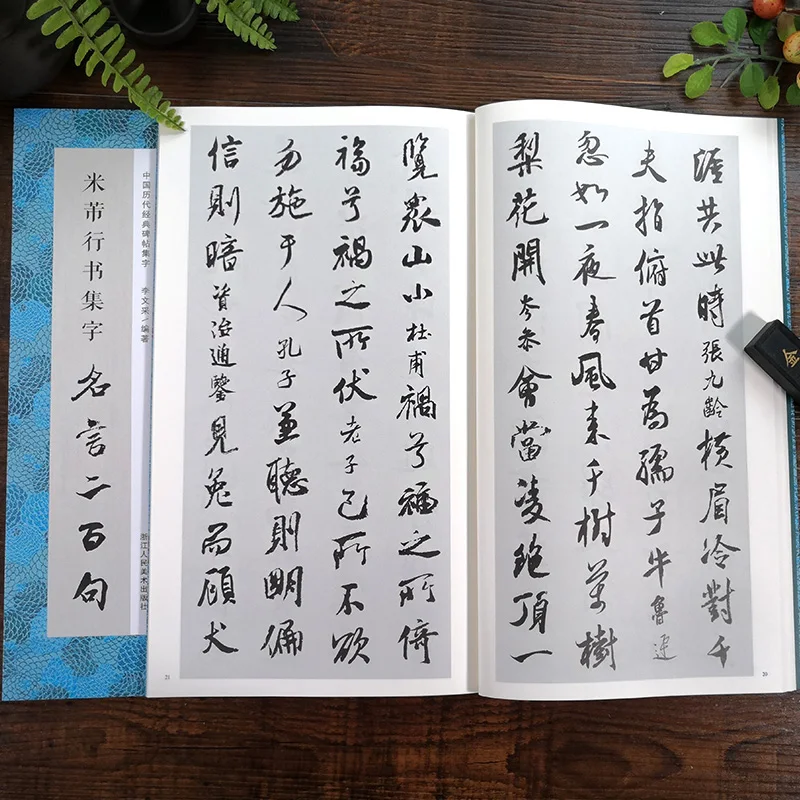 涯共此時張九齡橫眉冷對千
夫指俯首甘為孺子牛魯迅
忽如一夜春風來千樹萬樹
梨花開岑參會當凌絕頂一
20
覽眾山小杜甫禍兮福之所倚
福兮禍之所伏老子己所不欲
勿施于人孔子兼聽則明偏
信則暗資治通鑒見兔而顧犬
21
中国历代经典碑帖集字 李文采/编著
浙江人民美术出版社
米芾行书集字 名言二百句
金